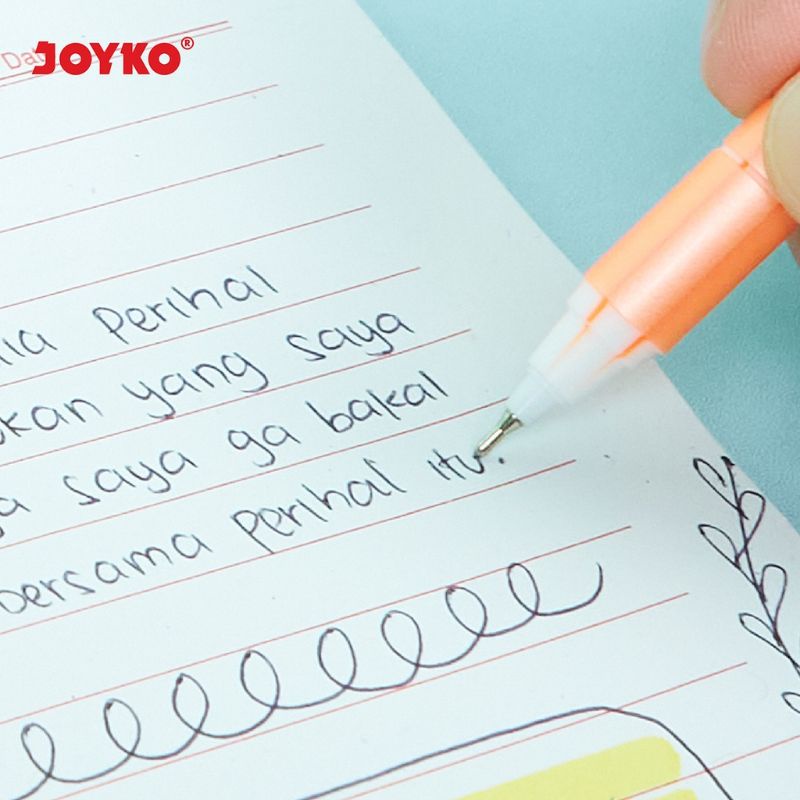 JOYKO®
Da
perihal
yang saya
saya ga bakal
bersama perihal itu.